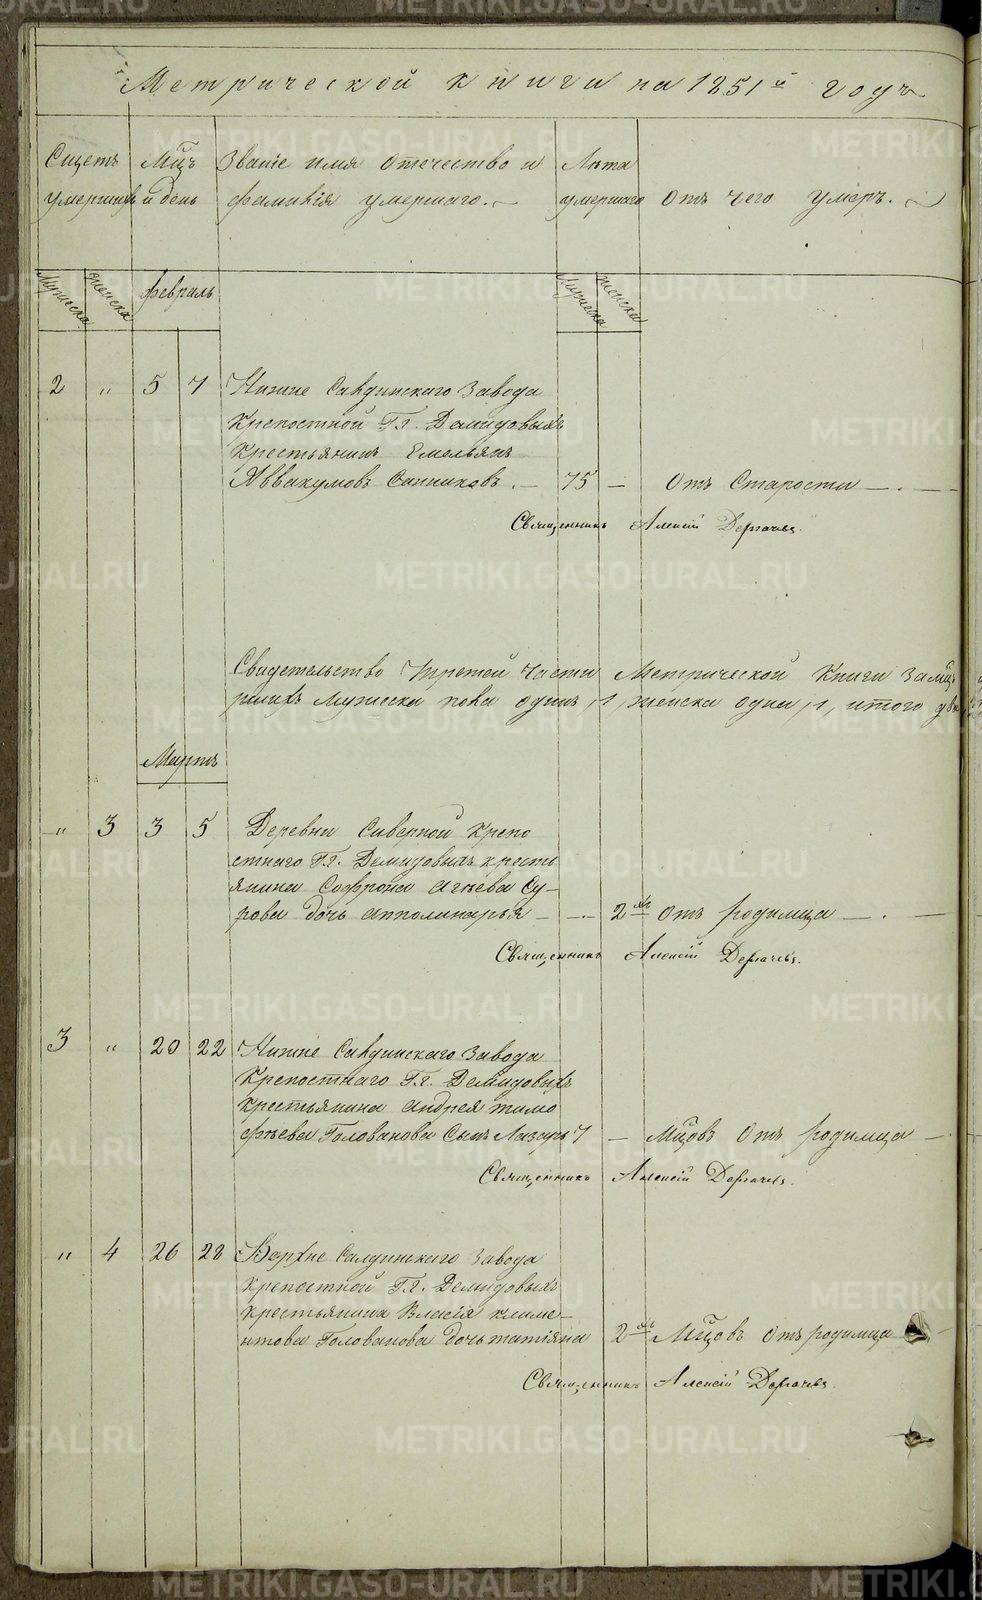 Метрической книги на 1851й годъ
Сщетъ умершихъ
Мцъ и день
Званіе имя отечество и фамилія умершаго.
Лѣта умершаго
Отъ чего умеръ.
Мужеска
женска
февраль
Мужеска
женска
2 „ 5 7 Нижне Салдинскаго Завода
Крепостной Гг. Демидовыхъ
Крестьянинъ Емельянъ
Аввакумовъ Сапниковъ. — 75 — Отъ Старости —.—
Священникъ Алексій Дергачевъ.
Свидетельство третей части Метрической Книги За
мужеска пола одинъ, 1, женска одна, 1, итого
Мартъ
„ 3 3 5 Деревни Сиверной крепо
стнаго Гг. Демидовыхъ кресть
янина Софрона Агѣева Су-
рова дочь Апполинарья — —. 2 Отъ родимца —.—
Священникъ Алексій Дергачевъ.
3 „ 20 22 Нижне Салдинскаго Завода
Крепостнаго Гг. Демидовыхъ
крестьянина Андрея тимо
фѣева Голованова Сынъ Лазарь 7 — Мцовъ Отъ родимца —
Священникъ Алексій Дергачевъ.
„ 4 26 28 Верхне Салдинскаго Завода
крепостной Гг. Демидовыхъ
крестьянина Власія климе-
нтова Голованова дочь татіяна 2 Мцовъ отъ родимца
Священникъ Алексій Дергачевъ.
METRIKI.GASO-URAL.RU